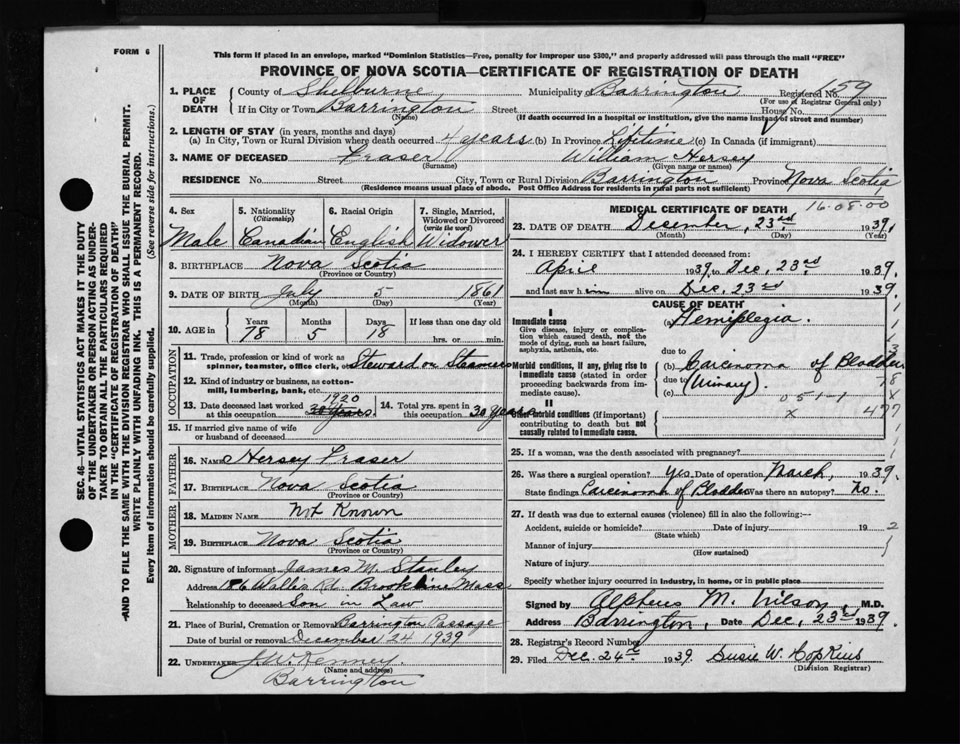 FORM 6
This form if placed in an envelope, marked "Dominion Statistics—Free, penalty for improper use $300," and properly addressed will pass through the mail "FREE"
PROVINCE OF NOVA SCOTIA—CERTIFICATE OF REGISTRATION OF DEATH
SEC. 46—VITAL STATISTICS ACT MAKES IT THE DUTY
OF THE UNDERTAKER OR PERSON ACTING AS UNDER-
TAKER TO OBTAIN ALL THE PARTICULARS REQUIRED
IN THE "CERTIFICATE OF REGISTRATION OF DEATH"
AND TO FILE THE SAME WITH THE DIVISION REGISTRAR WHO SHALL ISSUE THE BURIAL PERMIT.
WRITE PLAINLY WITH UNFADING INK. THIS IS A PERMANENT RECORD.
Every item of information should be carefully supplied. (See reverse side for instructions.)
1. PLACE OF DEATH
County of Shelburne Municipality of Barrington Registered No. 159
(For use of Registrar General only)
If in City or Town Barrington Street House No.
(Name) (If death occurred in a hospital or institution, give the name instead of street and number)
2. LENGTH OF STAY (in years, months and days)
(a) In City, Town or Rural Division where death occurred 4 years (b) In Province Lifetime (c) In Canada (if immigrant)
3. NAME OF DECEASED Fraser William Hersey
(Surname) (Given name or names)
RESIDENCE No. Street City, Town or Rural Division Barrington Province Nova Scotia
(Residence means usual place of abode. Post Office Address for residents in rural parts not sufficient)
4. Sex 5. Nationality (Citizenship) 6. Racial Origin 7. Single, Married, Widowed or Divorced (write the word)
Male Canadian English Widower
8. BIRTHPLACE Nova Scotia
(Province or Country)
9. DATE OF BIRTH July 5 1861
(Month) (Day) (Year)
10. AGE in Years Months Days If less than one day old
78 5 18 hrs. or min.
OCCUPATION
11. Trade, profession or kind of work as spinner, teamster, office clerk, etc. Steward on Steamers
12. Kind of industry or business, as cotton-mill, lumbering, bank, etc.
13. Date deceased last worked at this occupation 1920 30 years
14. Total yrs. spent in this occupation 30 years
15. If married give name of wife or husband of deceased
FATHER
16. NAME Hersey Fraser
17. BIRTHPLACE Nova Scotia
(Province or Country)
MOTHER
18. MAIDEN NAME Not Known
19. BIRTHPLACE Nova Scotia
(Province or Country)
20. Signature of informant James M. Stanley
Address 186 Wallis Rd. Brookline Mass
Relationship to deceased Son in Law
21. Place of Burial, Cremation or Removal Barrington Passage
Date of burial or removal December 24 1939
22. UNDERTAKER J. W. Kenney.
(Name and address)
Barrington
MEDICAL CERTIFICATE OF DEATH 16-08-00
23. DATE OF DEATH December, 23rd 1939,
(Month) (Day) (Year)
24. I HEREBY CERTIFY that I attended deceased from:
April 1939 to Dec, 23rd 1939.
and last saw him alive on Dec. 23rd 1939.
CAUSE OF DEATH
I
Immediate cause (a) Hemiplegia.
Give disease, injury or complication which caused death, not the mode of dying, such as heart failure, asphyxia, asthenia, etc.
due to
Morbid conditions, if any, giving rise to immediate cause (stated in order proceeding backwards from immediate). (b) Carcinoma of Bladder
due to (Urinary).
(c) 051-1
II
Other morbid conditions (if important) contributing to death but not causally related to Immediate cause. x 477
25. If a woman, was the death associated with pregnancy?
26. Was there a surgical operation? Yes. Date of operation March, 1939.
State findings Carcinoma of Bladder Was there an autopsy? No.
27. If death was due to external causes (violence) fill in also the following:—
Accident, suicide or homicide? Date of injury 19
(State which)
Manner of injury
(How sustained)
Nature of injury
Specify whether injury occurred in industry, in home, or in public place
Signed by Alpheus M. Wilson, M.D.
Address Barrington, Date Dec, 23rd 1939.
28. Registrar's Record Number
29. Filed Dec. 24th 1939. Susie W. Hopkins
(Division Registrar)